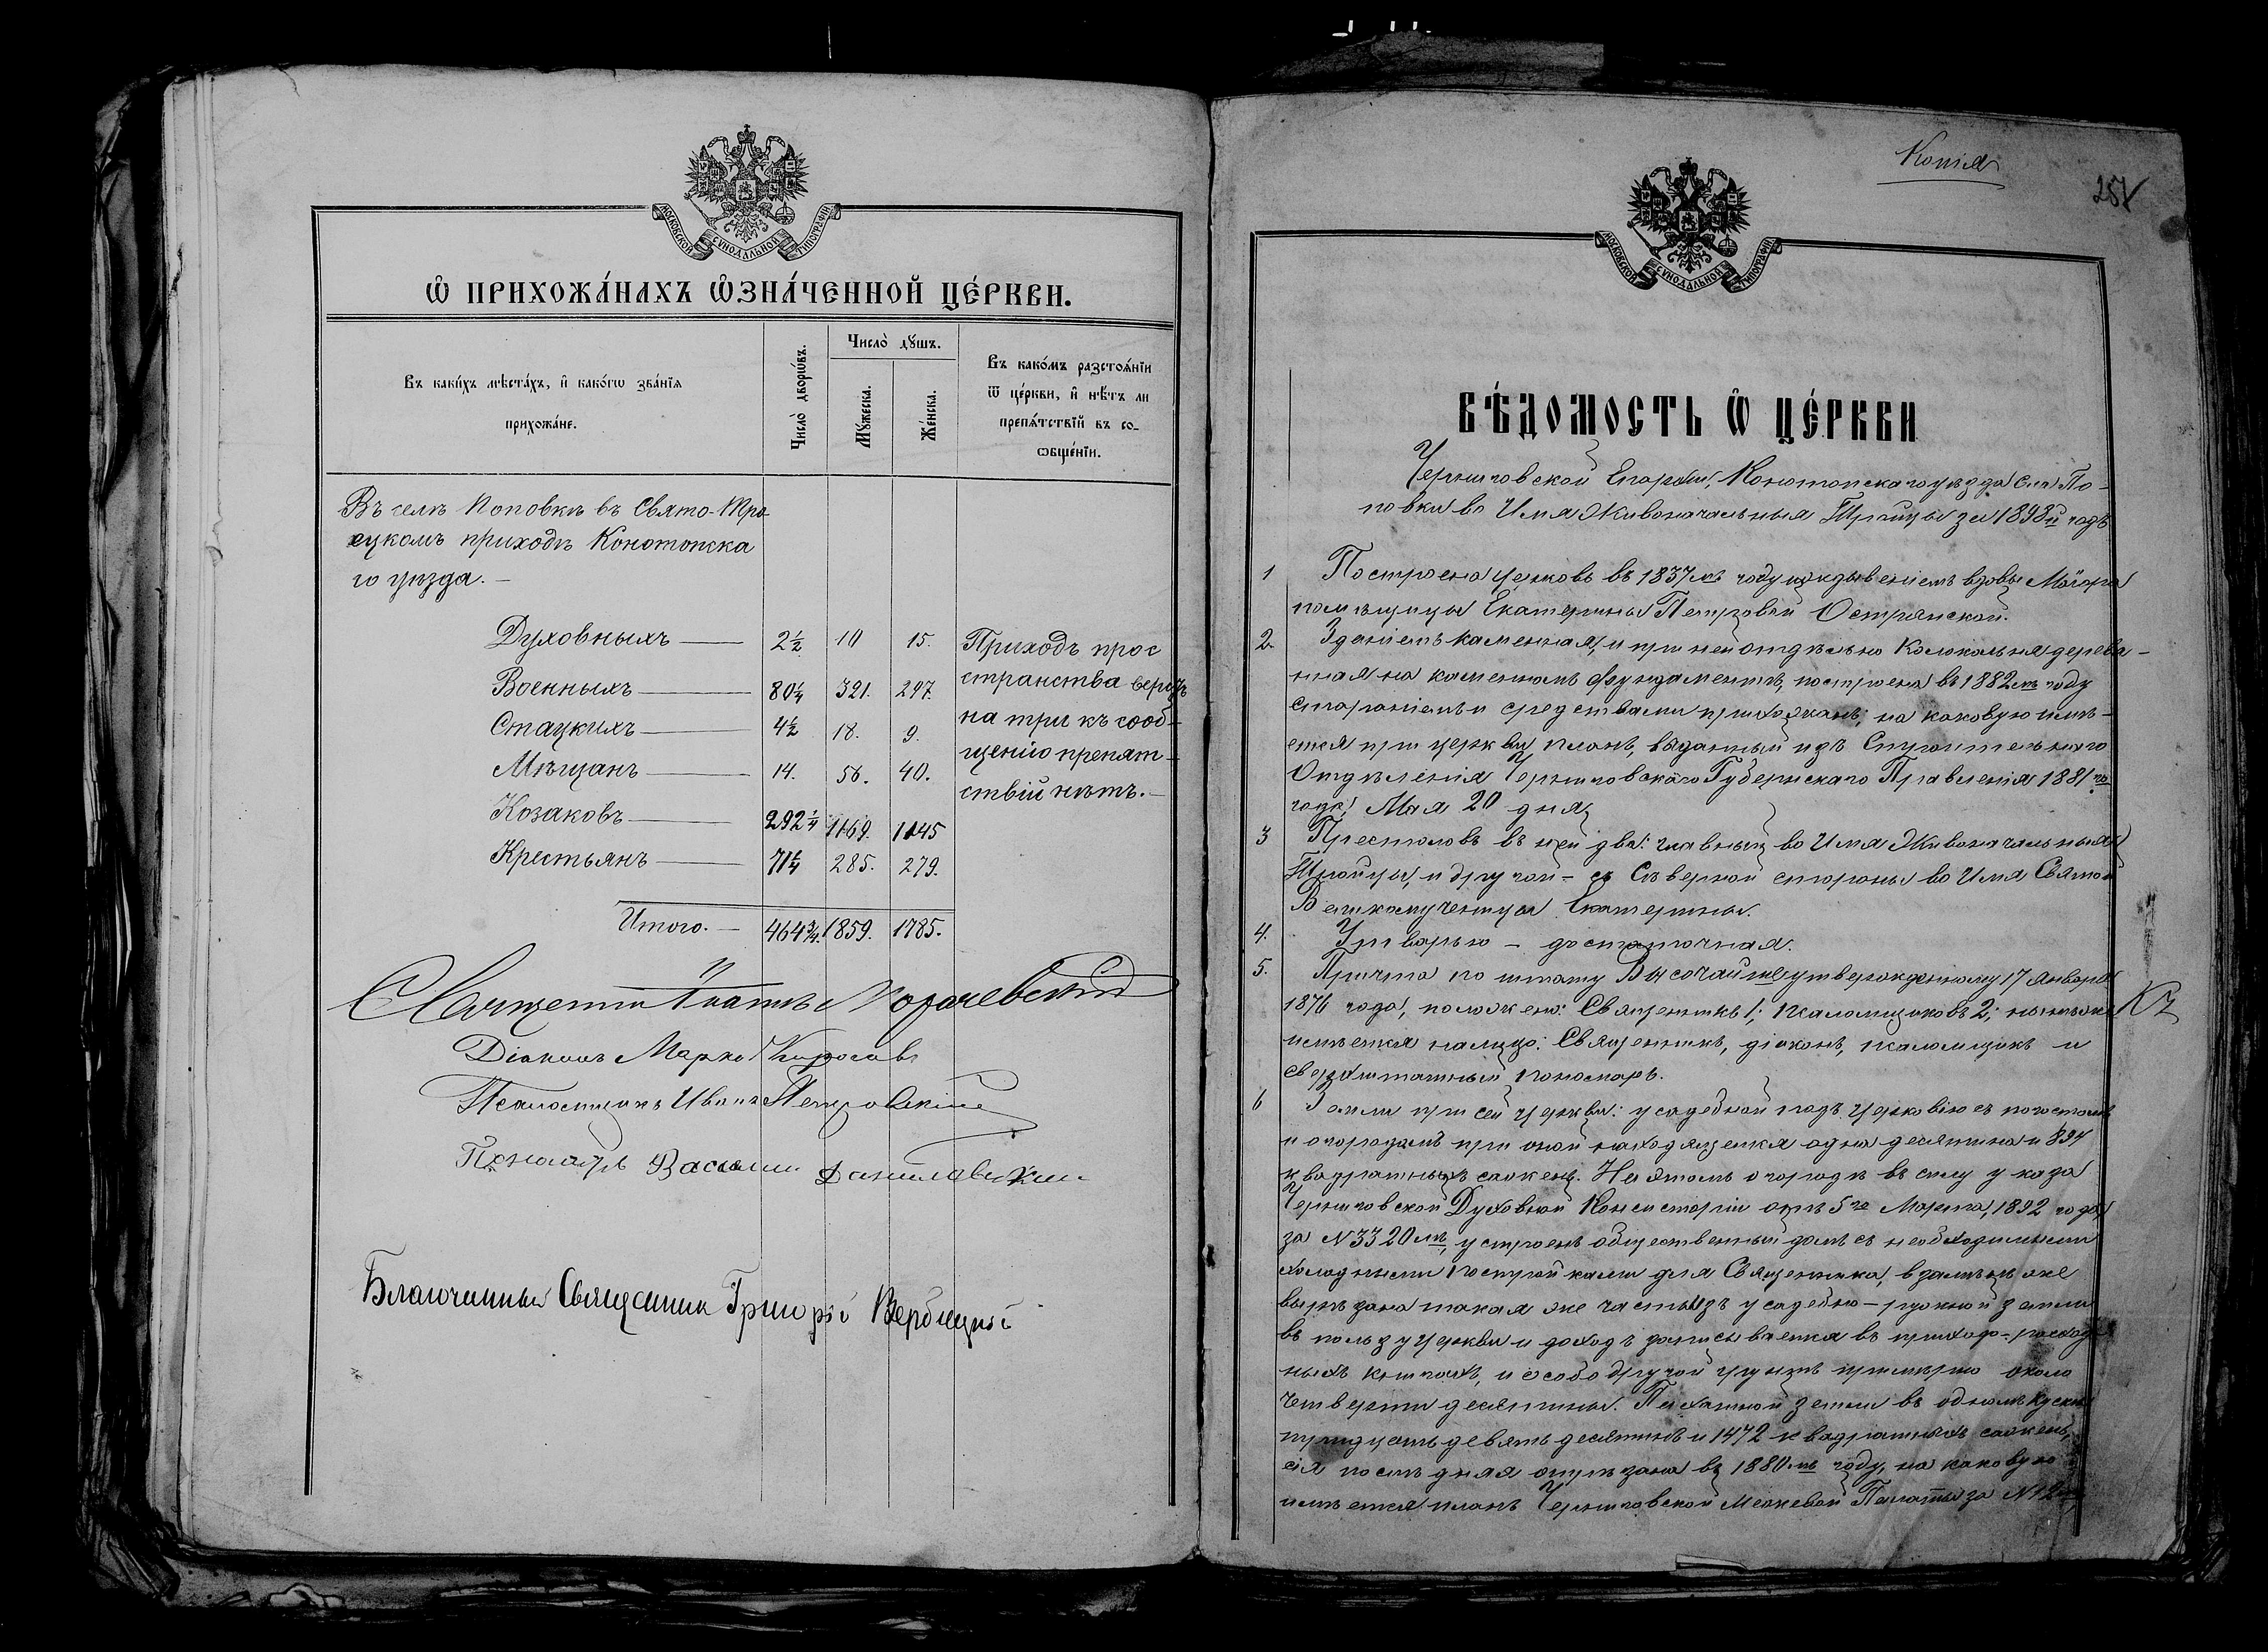 МОСКОВСКОЙ СѴНОДАЛЬНОЙ ТИПОГРАФІИ
Ѽ ПРИХОЖА́НАХЪ Ѡ҆ЗНА́ЧЕННОЙ ЦЕ́РКВИ.
Въ каки́хъ мѣста́хъ, и҆ како́гѡ зва́нїѧ
прихожа́не.
Число̀ дворѡ́въ.
Число̀ дꙋ́шъ.
Мꙋ́жеска.
Же́нска.
Въ како́мъ разстоѧ́нїи
ѿ це́ркви, и҆ нѣ́тъ ли
препѧ́тствїй въ со-
ѡбще́нїи.
Въ селѣ Поповкѣ въ Свято-Тро-
ецкомъ приходѣ Конотопска
го уѣзда. –
Духовныхъ — 2½ 10 15.
Военныхъ — 80¼ 321. 297.
Стацкихъ — 4½ 18. 9.
Мѣщанъ — 14. 56. 40.
Козаковъ — 292¼ 1169. 1145
Крестьянъ — 71¼ 285. 279.
Итого. — 464¾. 1859. 1785.
Приходъ прос
странства верстъ
на три къ сооб-
щенію препят-
ствій нѣтъ. –
Діаконъ Марко
Псаломщикъ Иванъ Петровскій
Пономарь Василій Данилевскій
Благочинный Священникъ Григорій Вербицкій
Копія
МОСКОВСКОЙ СѴНОДАЛЬНОЙ ТИПОГРАФІИ
ВѢ́ДОМОСТЬ Ѽ ЦЕ́РКВИ
Черниговской Епархіи, Конотопскаго уѣзда села По-
повки во Имя Живоначальныя Тройцы за 1898й годъ
1 Построена церковь въ 1837мъ году иждивеніемъ вдовы Маіора
помѣщицы Екатерины Петровой Острянской.
2. Зданіемъ каменная, и при ней отдѣльно Колокольня дерева-
нная на каменномъ фундаментѣ, построена въ 1882мъ году
стараніемъ и средствами прихожанъ; на каковую имѣ-
ется при церкви планъ, выданный изъ Строительнаго
Отдѣленія Черниговскаго Губернскаго Правленія 1881го
года, Мая 20 дня.
3 Престоловъ въ ней два: главный во Имя Живоначальныя
Тройцы, и другой - съ Сѣверной стороны во Имя Святой
Великомученицы Екатерины.
4. Утварью – достаточная.
5. Причта по штату Высочайше утвержденному 17 Января
1876 года, положено: Священникъ 1; Псаломщиковъ 2; нынѣ же
имѣется налицо: Священникъ, діаконъ, псаломщикъ и
сверхштатный пономарь.
6 Земли при сей церкви: усадебной подъ церковію съ погостомъ
и огородомъ при оной находящемся одна десятина и 894
квадратныхъ сажень. На этомъ огородѣ въ силу указа
Черниговской Духовной Консисторіи отъ 5го Марта, 1892 года
за N 3320мъ, устроенъ общественный домъ съ необходимыми
холодными постройками для Священника, взамѣнъ же
вырѣзана такая же часть изъ усадебно-ружной земли
въ пользу церкви и доходъ записывается въ приходо-расход
ныхъ книгахъ, и особо другой грунтъ примѣрно около
четверти десятины. Пахатной земли въ одномъ кускѣ
тридцать девять десятинъ и 1472 квадратныхъ сажень,
сія послѣдняя отрѣзана въ 1880мъ году, на каковую
имѣется планъ Черниговской Межевой Палаты за N 12